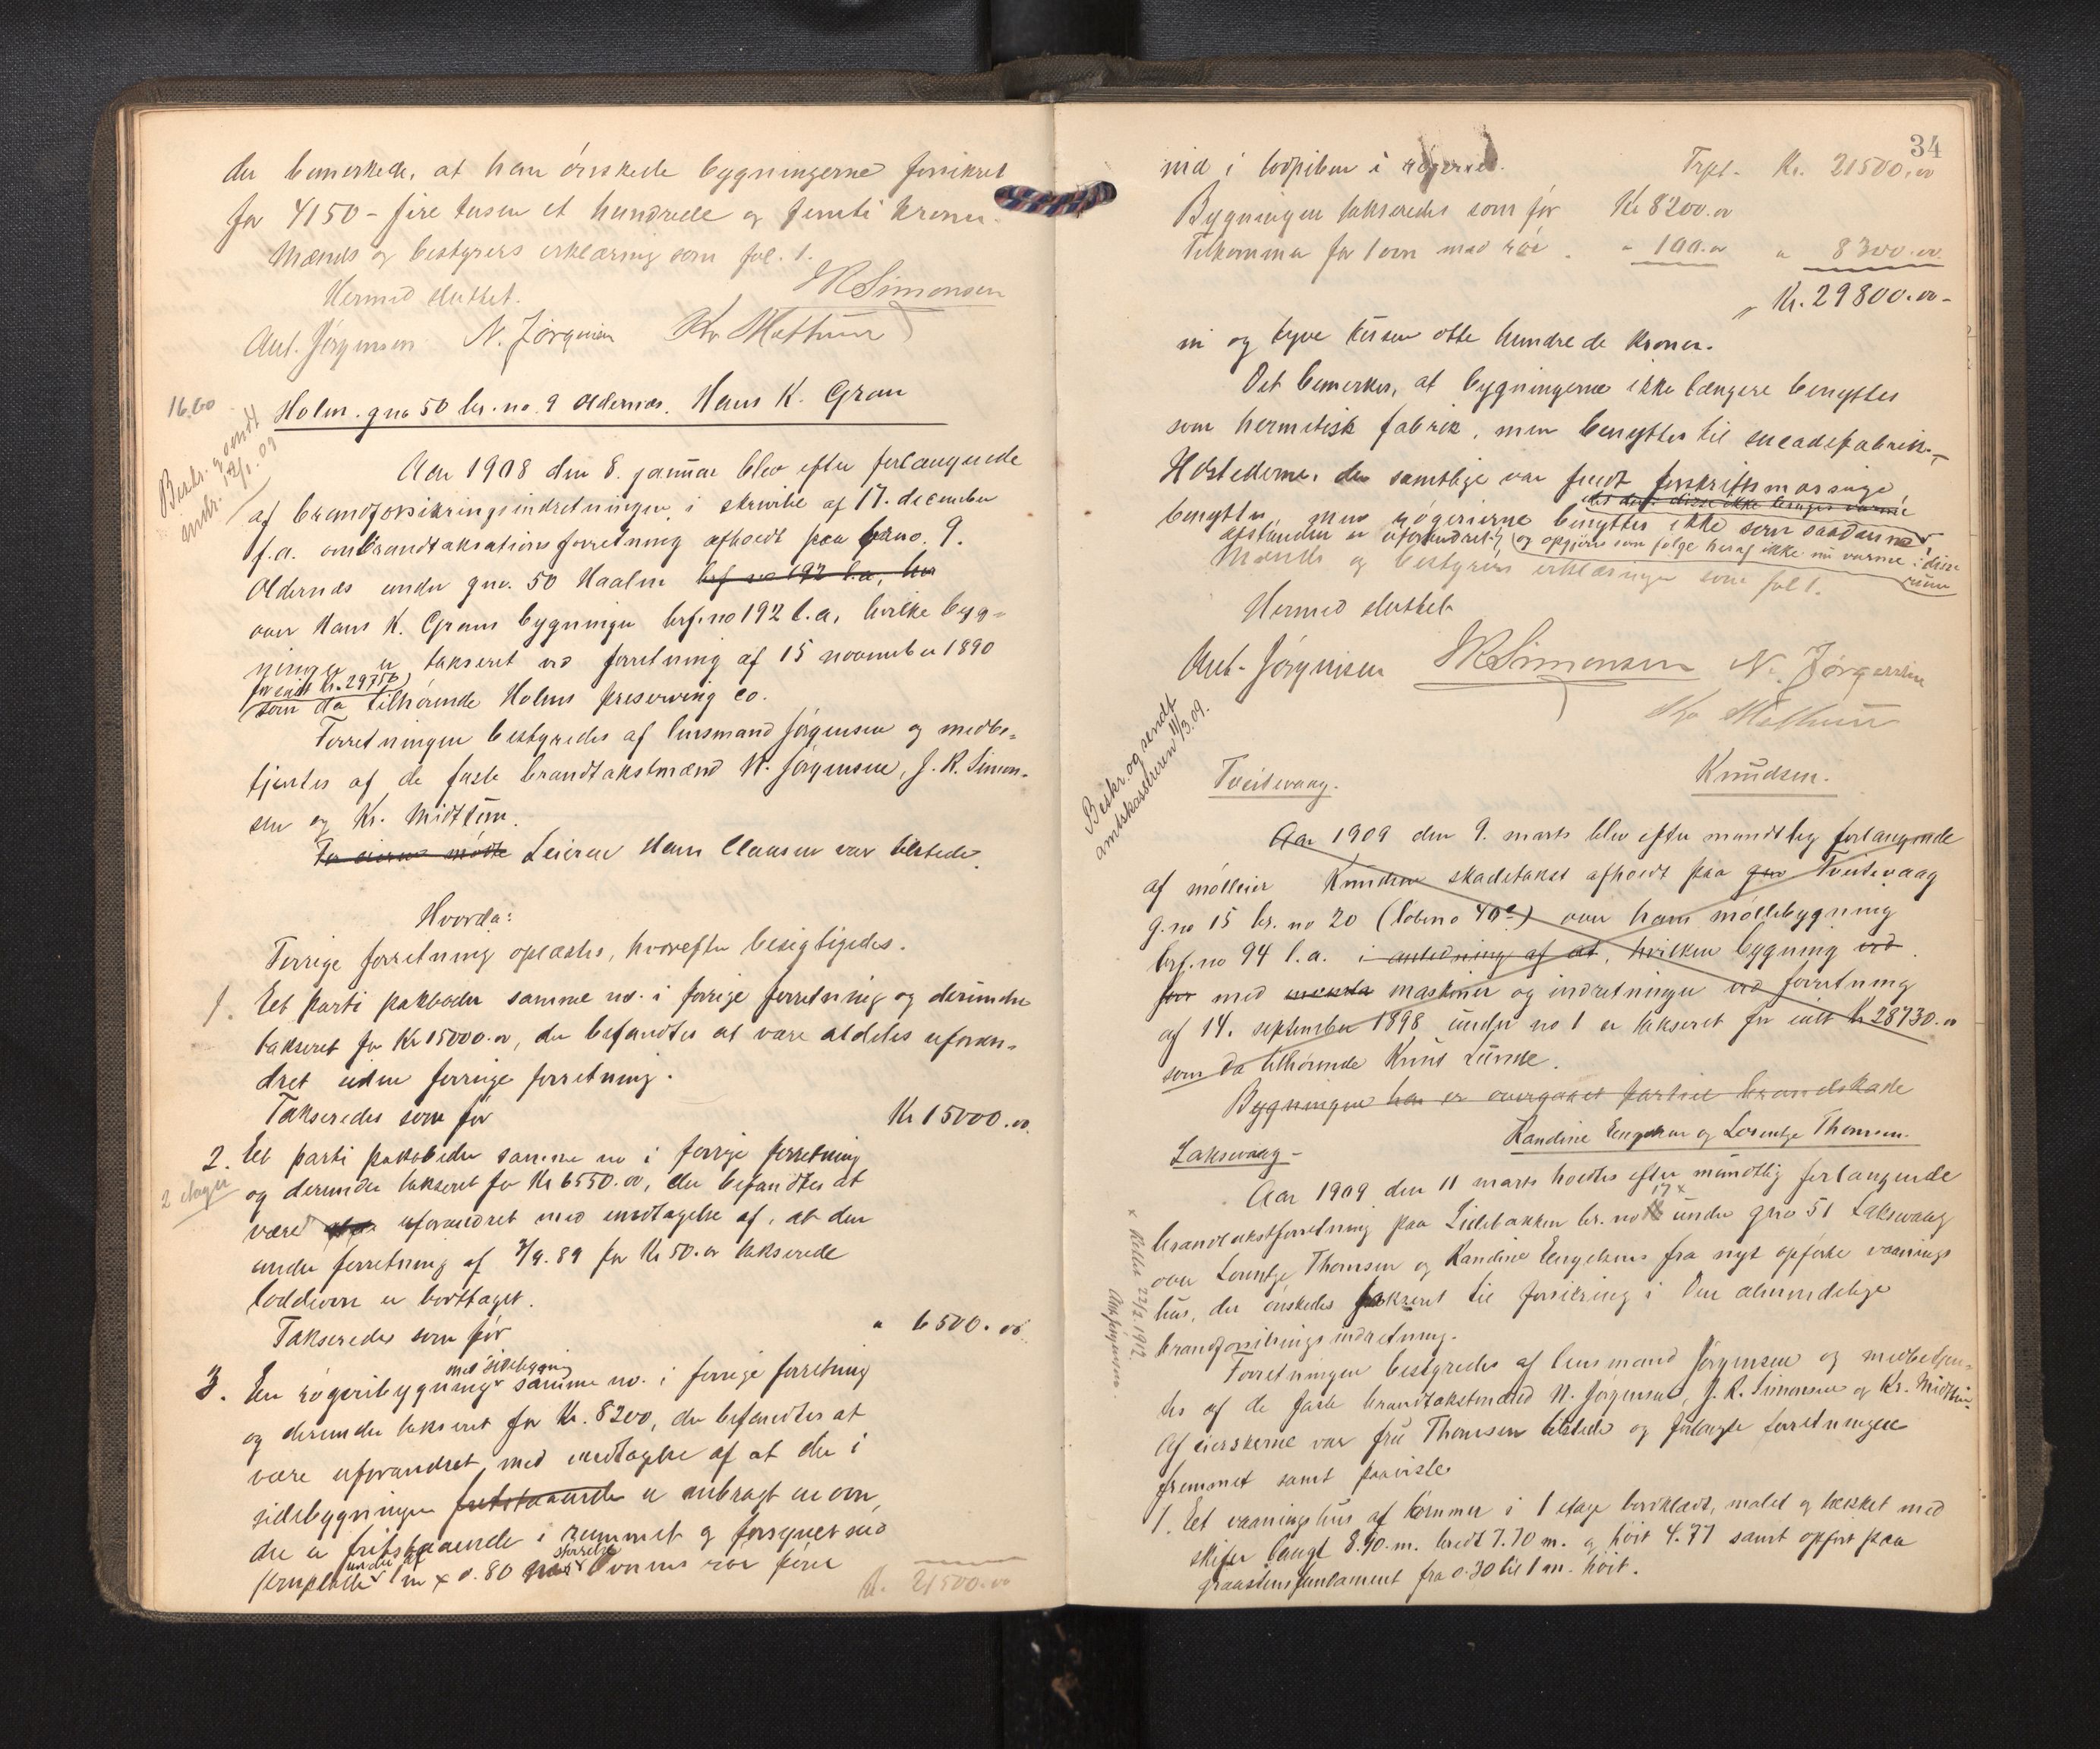 der bemerkede, at han ønskede bygningerne forsikret
for 4150 - fire tusen et hundrede og femti kroner.
Mænds og bestyrers erklæring som fol. 1.
Hermed sluttet.
JRSimonsen
Ant. Jørgensen N. Jørgensen Kr Midttun
16.60
Holm. gno 50 br. no. 9 Oldernæs. Hans K. Gran
Beskr. og sendt
Aar 1908 den 8. januar blev efter forlangende
af brandforsikringsindretningen i skrivelse af 17. december
f.a. om brandtakstationsforretning afholdt paa brno. 9.
Oldernæs under gno. 50 Haalm brf no 192 l.a, hv
over Hans K. Grans bygninger brf. no 192 l.a, hvilke byg-
ninger er takseret ved forretning af 15 november 1890
for ialt kr. 29750
som da tilhørende Holms preserving co.
Forretningen bestyredes af lensmand Jørgensen og medbe-
tjentes af de faste brandtakstmænd N. Jørgensen, J. R. Simon-
sen og Kr. Midttun.
For eieren mødte Leieren Hans Claasen var tilstede.
Hvorda:
Forrige forretning oplæstes, hvorefter besigtigedes.
1. Et parti pakboder samme no. i forrige forretning og derunder
takseret for Kr 15000.00, der befandtes at være aldeles uforan-
dret siden forrige forretning.
Takseredes som før Kr 15000.00
2. Et parti pakboder samme no i forrige forretning
2 etager
og derunder takseret for Kr 6550.00, der befandtes at
være uforandret med undtagelse af, at den
under forretning af 7/9.89 for Kr 50.00 takserede
loddeovn er borttaget.
Takseredes som før " 6500.00
3. En røgeribygning med sidebygning samme no. i forrige forretning
og derunder takseret for Kr. 8200, der befandtes at
være uforandret med undtagelse af at der i
sidebygningen fritstaaende er anbragt en ovn,
der er fritstaaende i rummet og forsynet med
jernplade under af 1 m x 0.80 størrelse Ovnens rør fører
Kr. 21500.00
34
ind i lodpiben i røgeriet. Trpt. Kr. 21500.00
Bygningen takseredes som før Kr 8200.00
Tilkommer for 1 ovn med rør. " 100.00 " 8300.00
Kr. 29800.00 -
ni og tyve tusen otte hundrede kroner.
Det bemerkes, at bygningerne ikke længere benyttes
som hermetisk fabrik, men benyttes til sucadefabrik.-
Ildstederne, der samtlige var fundt forskriftsmæssige,
benyttes, men røgerierne benyttes ikke som saadanne
afstanden er uforandret, og opgjøres som følge heraf ikke nu varme i disse
rum
Mænds og bestyrers erklæringer som fol 1.
Hermed sluttet
Ant. Jørgensen JRSimonsen N. Jørgensen
Kr Midttun
Beskr. og sendt
amtskassereren 11/3.09.
Tveitevaag. Knudsen.
Aar 1909 den 9. marts blev efter mundtlig forlangende
af mølleier Knudsen skadetakst afholdt paa gno Tveitevaag
g.no 15 br. no 20 (løbeno 40e) over hans møllebygning
brf. no 94 l.a. i anledning af at, hvilken bygning ved
for med maskiner og indretninger ved forretning
af 14. september 1898 under no 1 er takseret for ialt kr 28730.00
som da tilhørende Knud Lunde.
Bygningen har er overgaaet partiel brandskade
Laksevaag - Randine Engelsen og Lorentze Thomsen.
Aar 1909 den 11 marts holdtes efter mundtlig forlangende
brandtakstforretning paa Lidebakken br. no 17 x under gno 51 Laksevaag
over Lorentze Thomsen og Randine Engelsens fra nyt opførte vaanings
hus, der ønskedes takseret til forsikring i Den almindelige
brandforsikringsindretning.
x Rettet 22/2 1912.
Ant Jørgensen
Forretningen bestyredes af lensmand Jørgensen og medbetjen-
tes af de faste brandtakstmænd N. Jørgensen, J. R. Simonsen og Kr. Midttun.
Af eierskerne var fru Thomsen tilstede og forlangte forretningen
fremmet samt paaviste
1. Et vaaningshus af tømmer i 1 etage bordklædt, malet og tækket med
skifer langt 8.90.m. bredt 7.70 m. og høit 4.77 samt opført paa
graastensfundament fra 0.30 til 1 m. høit.